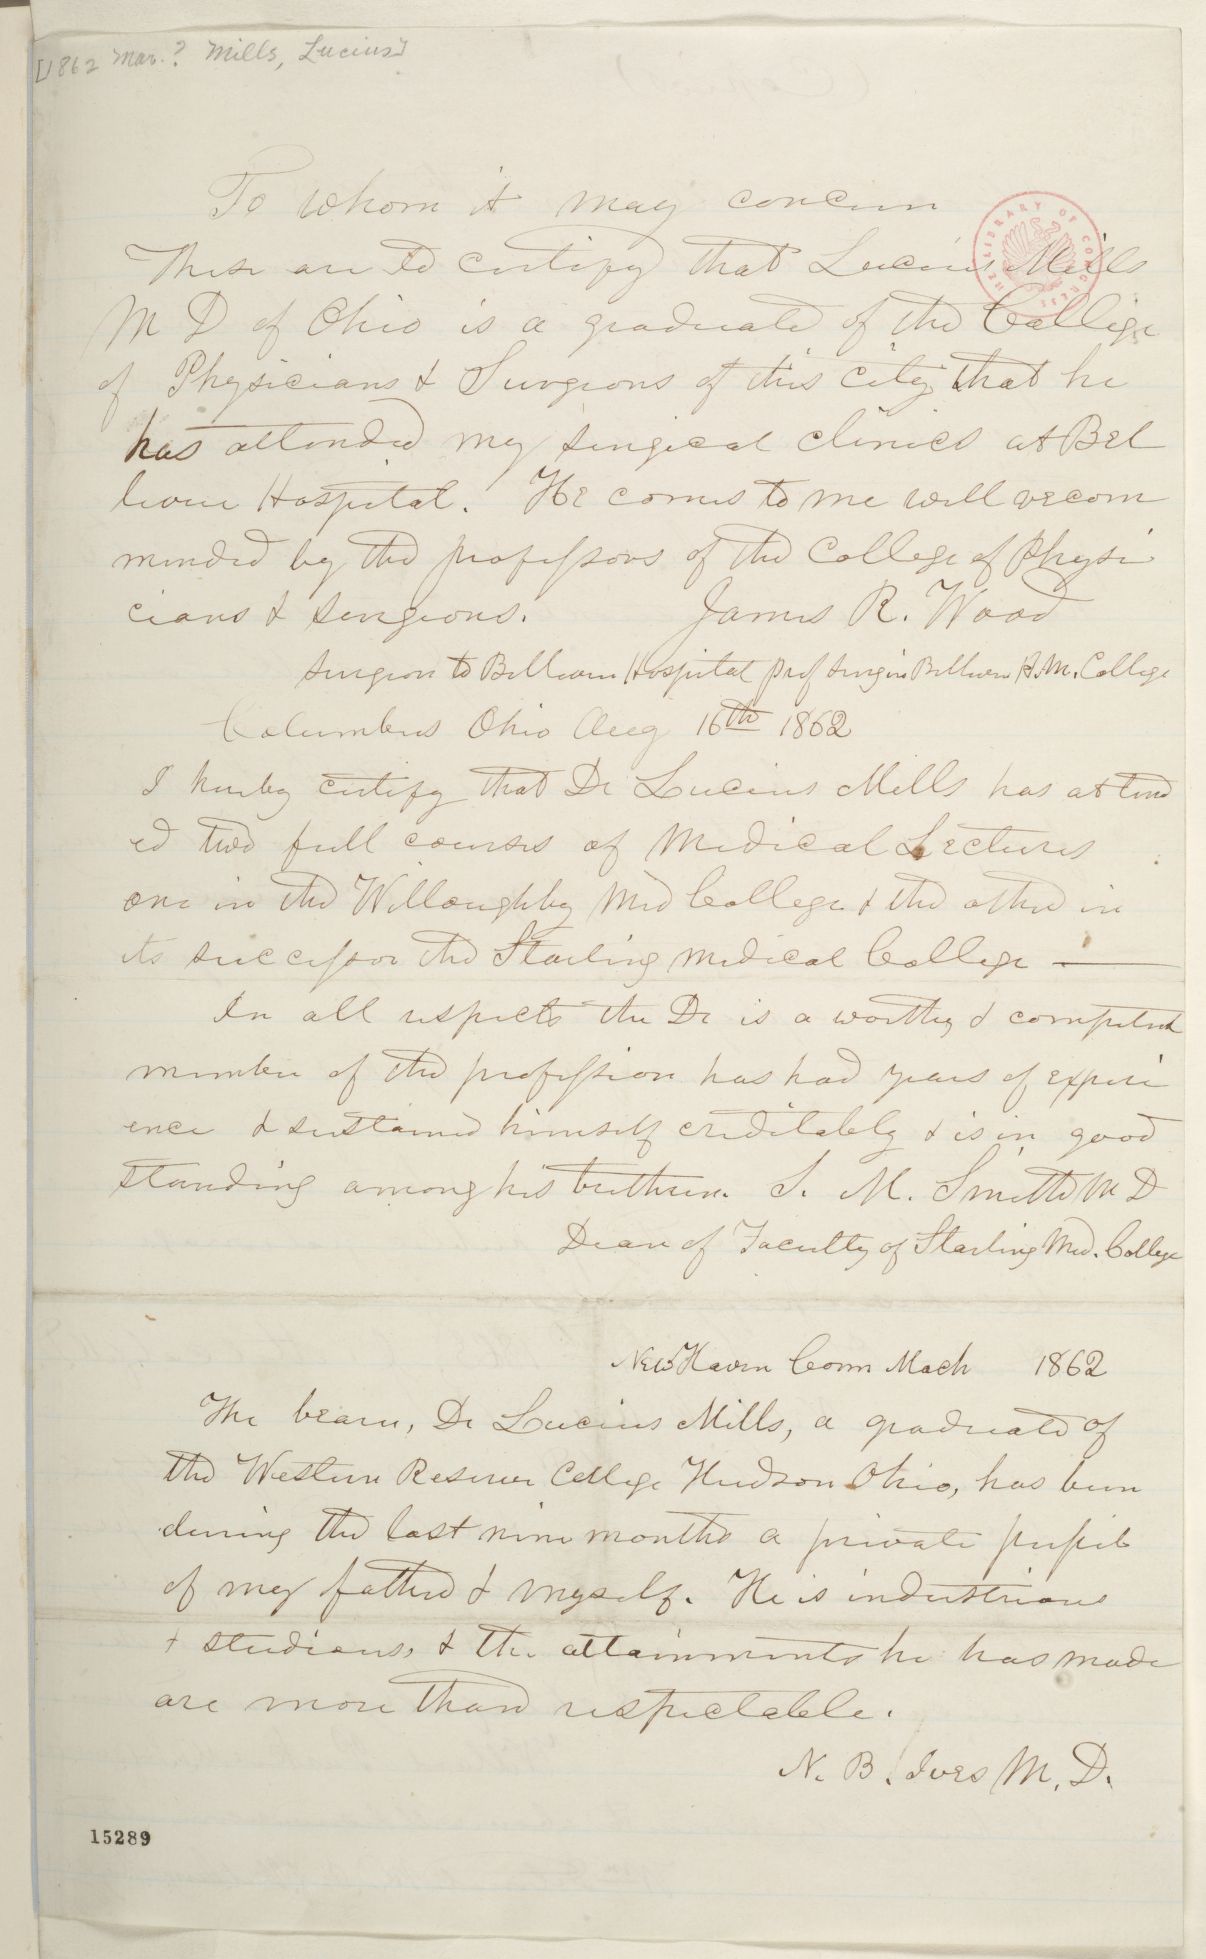 [1862 Mar.? Mills, Lucius]
To whom it may concern
These are to certify that Lucius Mills
M D of Ohio is a graduate of the College
of Physicians & Surgeons of this city that he
has attended my surgical clinics at Bel
levue Hospital. He comes to me well recom
mended by the professors of the College of Physi
cians & surgeons. James R. Wood
surgeon to Bellevue Hospital prof surg in Bellevue H. M. College
Columbus Ohio Aug 16th 1862
I hereby certify that Dr Lucius Mills has attend
ed two full courses of Medical Lectures
one in the Willoughby Med College & the other in
its successor the Starling Medical College —
In all respects the Dr is a worthy & competent
member of the profession has had years of experi
ence & sustained himself creditably & is in good
standing among his brethren. S. M. Smith M D
Dean of Faculty of Starling Med. College
New Haven Conn Mach 1862
The bearer, Dr Lucius Mills, a graduate of
the Western Reserve College Hudson Ohio, has been
during the last nine months a private pupil
of my father & myself. He is industrious
& studious, & the attainments he has made
are more than respectable.
N. B. Ives M. D.
15289
THE LIBRARY OF CONGRESS